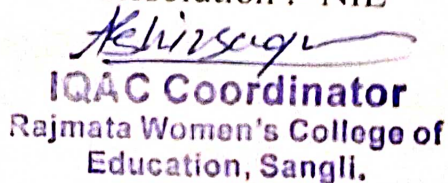 NIL
IQAC Coordinator
Rajmata Women's College of
Education, Sangli.